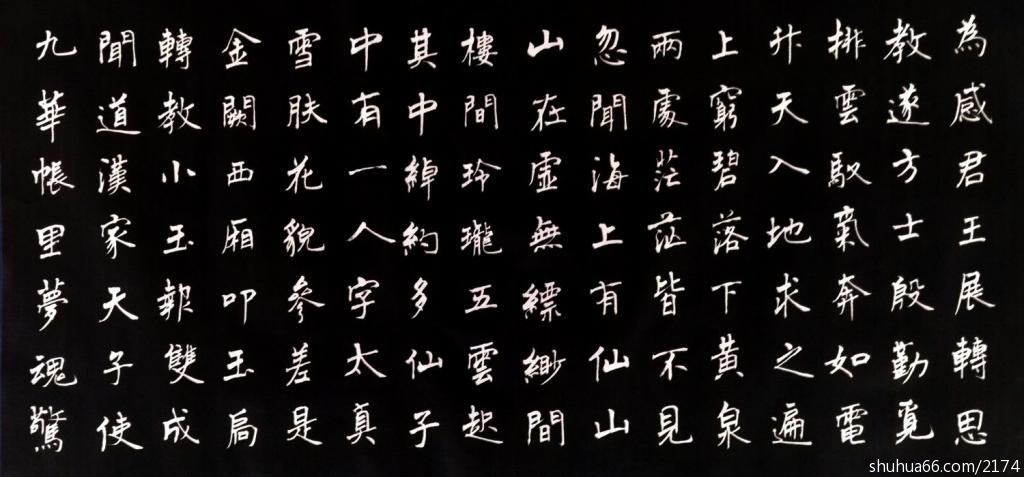 為感君王展轉思
教遂方士殷勤覓
排雲馭氣奔如電
升天入地求之遍
上窮碧落下黃泉
兩處茫茫皆不見
忽聞海上有仙山
山在虛無縹緲間
樓間玲瓏五雲起
其中綽約多仙子
中有一人字太真
雪肤花貌參差是
金闕西廂叩玉扃
轉教小玉報雙成
聞道漢家天子使
九華帳里夢魂驚
shuhua66.com/2174